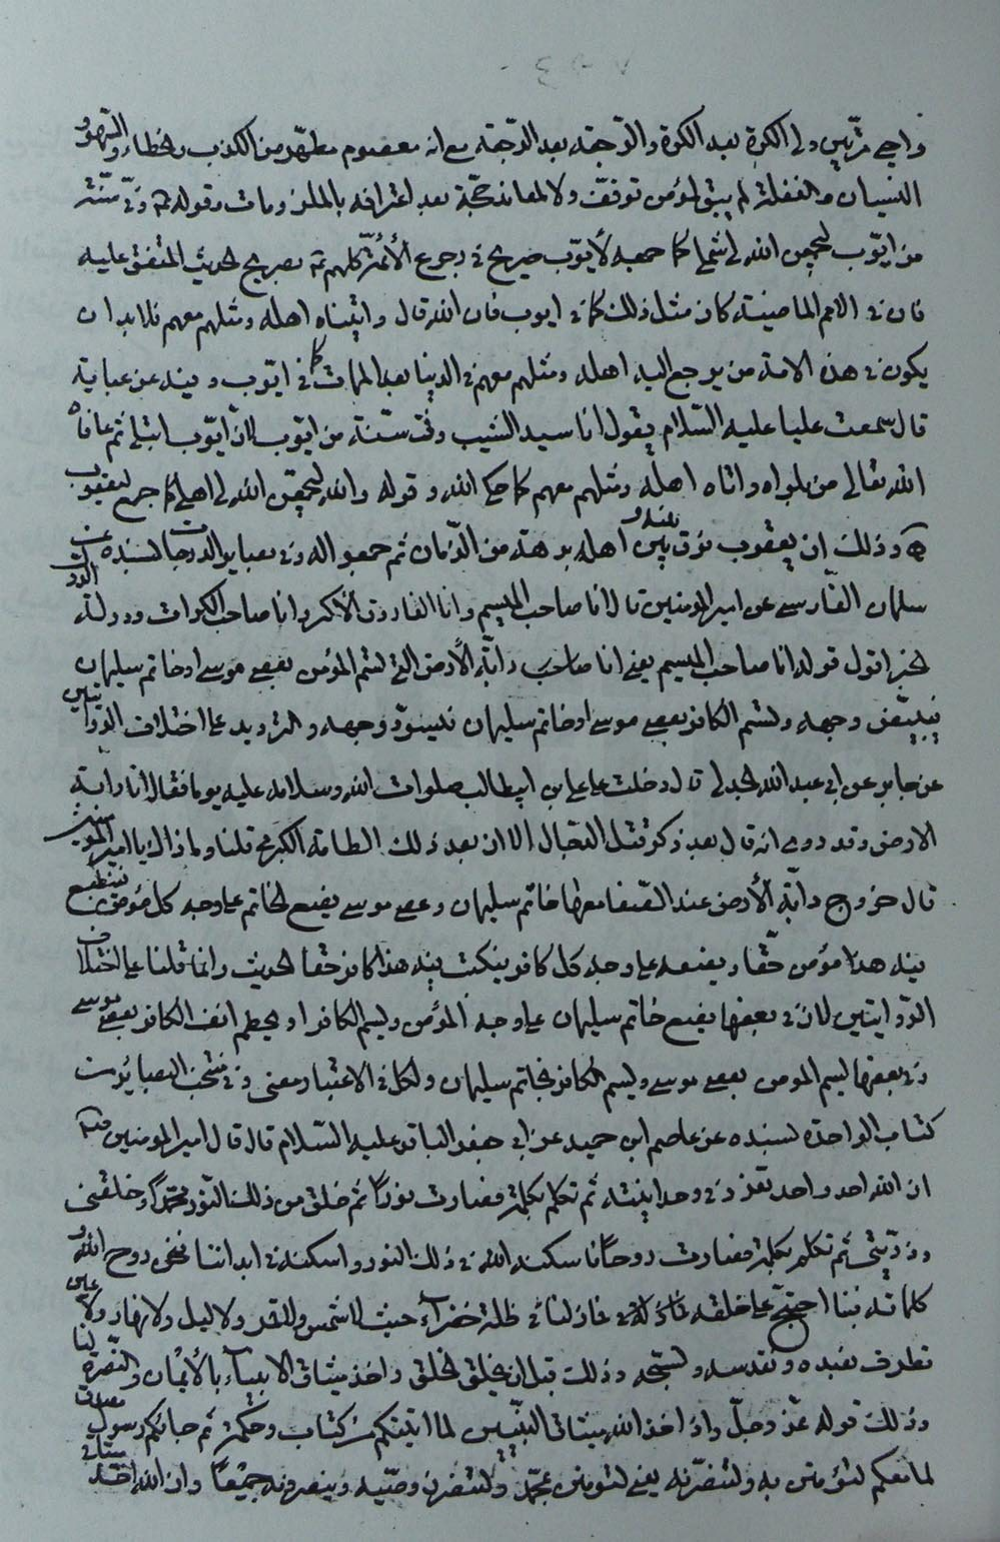 واحيى مرتين ولي الكرة بعد الكرة والرجعة بعد الرجعة مع انه معصوم مطهر من الكذب والخطاء والسهو و
النسيان والغفلة لم يبق لمؤمن توقف ولا لمعاند حجة بعد اعترافه وقوله وفي سنة
من ايوب ليجمعن الله لي شملي كما جمعه لأيوب صريح في رجوع الأئمة كلهم ثم بصريح الحديث المتفق عليه
فان في الامم الماضية كان مثل ذلك كما في ايوب فان الله قال واتيناه اهله ومثلهم معهم فلا بد ان
يكون في هذه الامة من يرجع اليه اهله ومثلهم معهم في الدنيا بعد الممات كما في ايوب وفيه عن عباية
قال سمعت عليا عليه السلام يقول انا سيد الشيب وفي سنة من ايوب لان ايوب ابتلي ثم عافاه
الله تعالى من بلواه واتاه اهله ومثلهم معهم كما حكى الله وقوله والله ليجمعن الله لي اهلي كما جمع ليعقوب
وذلك ان يعقوب فرق بينه وبين اهله برهة من الزمان ثم جمعوا له وفي بصاير الدرجات بسنده عن
سلمان الفارسي عن امير المؤمنين قال انا صاحب الميسم وانا الفاروق الأكبر وانا صاحب الكرات ودولة الدول
الخبر اقول قوله انا صاحب الميسم يعني انا صاحب دابة الأرض التي تسم المؤمن بعصى موسى او خاتم سليمان
فيبيض وجهه وتسم الكافر بعصى موسى او خاتم سليمان فيسود وجهه والترديد على اختلاف الروايتين
عن جابر عن ابي عبد الله الجدلي قال دخلت على علي بن ابيطالب صلوات الله وسلامه عليه يوما فقال انا دابة
الارض وقد روي انه قال بعد ذكر قتل الدجال الا ان بعد ذلك الطامة الكبرى قلنا وما ذاك يا امير المؤمنين
قال خروج دابة الأرض عند الصفا معها خاتم سليمان وعصى موسى يضع الخاتم على وجه كل مؤمن فينطبع
فيه هذا مؤمن حقا ويضعه على وجه كل كافر فيكتب فيه هذا كافر حقا الحديث وانما قلنا على اختلاف
الروايتين لان في بعضها يضع خاتم سليمان على وجه المؤمن ويسم الكافر او يخطم انف الكافر بعصى موسى
وفي بعضها يسم المومن بعصى موسى ويسم الكافر بخاتم سليمان ولكل في الاعتبار معنى وفي منتخب البصاير من
كتاب الواحدة بسنده عن عاصم ابن حميد عن ابي جعفر الباقر عليه السلام قال قال امير المومنين
ان الله احد واحد تفرد في وحدانيته ثم تكلم بكلمة فصارت نورا ثم خلق من ذلك النور محمدا وخلقني
وذريتي ثم تكلم بكلمة فصارت روحا فاسكنه الله في ذلك النور واسكنه في ابداننا فنحن روح الله و
كلماته فبنا احتج على خلقه فما زلنا في ظلة خضراء حيث لا شمس ولا قمر ولا ليل ولا نهار ولا عين
تطرف نعبده ونقدسه ونسبحه وذلك قبل ان يخلق الخلق واخذ ميثاق الانبياء بالأيمان والنصرة لنا
وذلك قوله عز وجل واذ اخذ الله ميثاق النبيين لما اتيتكم من كتاب وحكمة ثم جائكم رسول مصدق
لما معكم لتؤمنن به ولتنصرنه يعني لتؤمنن بمحمد ولتنصرن وصيه وينصرونه جميعا وان الله اخذ ميثاقي